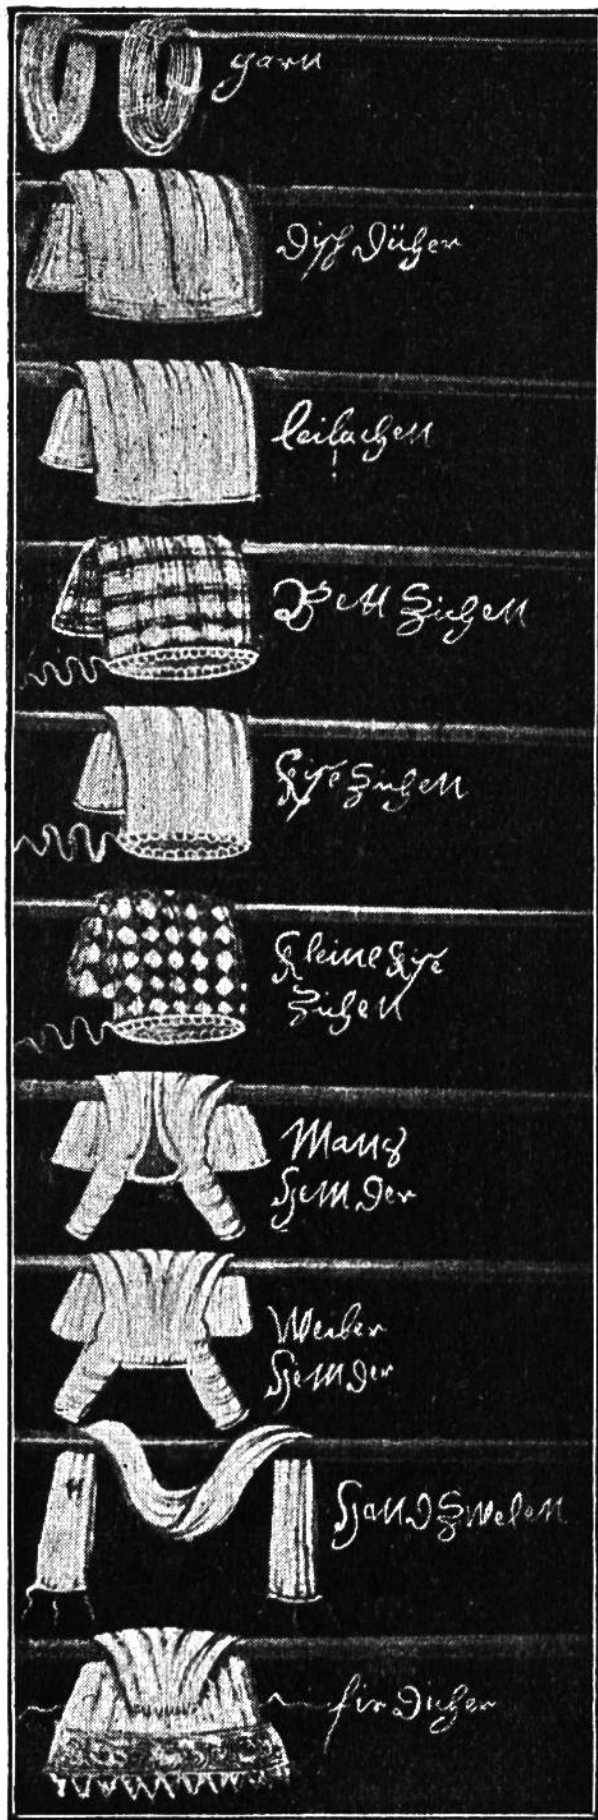 garn
Disch Dücher
leilachen
Bett Ziehen
Kisse Ziehen
Kleine Kisse
Ziehen
Mans
Hemder
Weiber
Hemder
Hand Zwelen
fir Dicher